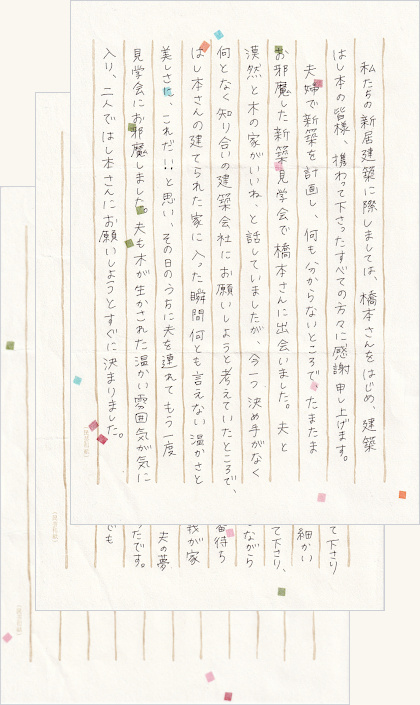 私たちの新居建築に際しましては、橋本さんをはじめ、建築
はし本の皆様、携わって下さったすべての方々に感謝申し上げます。
夫婦で新築を計画し、何も分からないところで、たまたま
お邪魔した新築見学会で橋本さんに出会いました。夫と
漠然と木の家がいいね、と話していましたが、今一つ決め手がなく
何となく知り合いの建築会社にお願いしようと考えていたところで、
はし本さんの建てられた家に入った瞬間何とも言えない温かさと
美しさに、これだ!!と思い、その日のうちに夫を連れてもう一度
見学会にお邪魔しました。夫も木が生かされた温かい雰囲気が気に
入り、二人ではし本さんにお願いしようとすぐに決まりました。
て下さり
細かい
て下さり、
ながら
待ち
我が家
夫の夢
たです。
でも